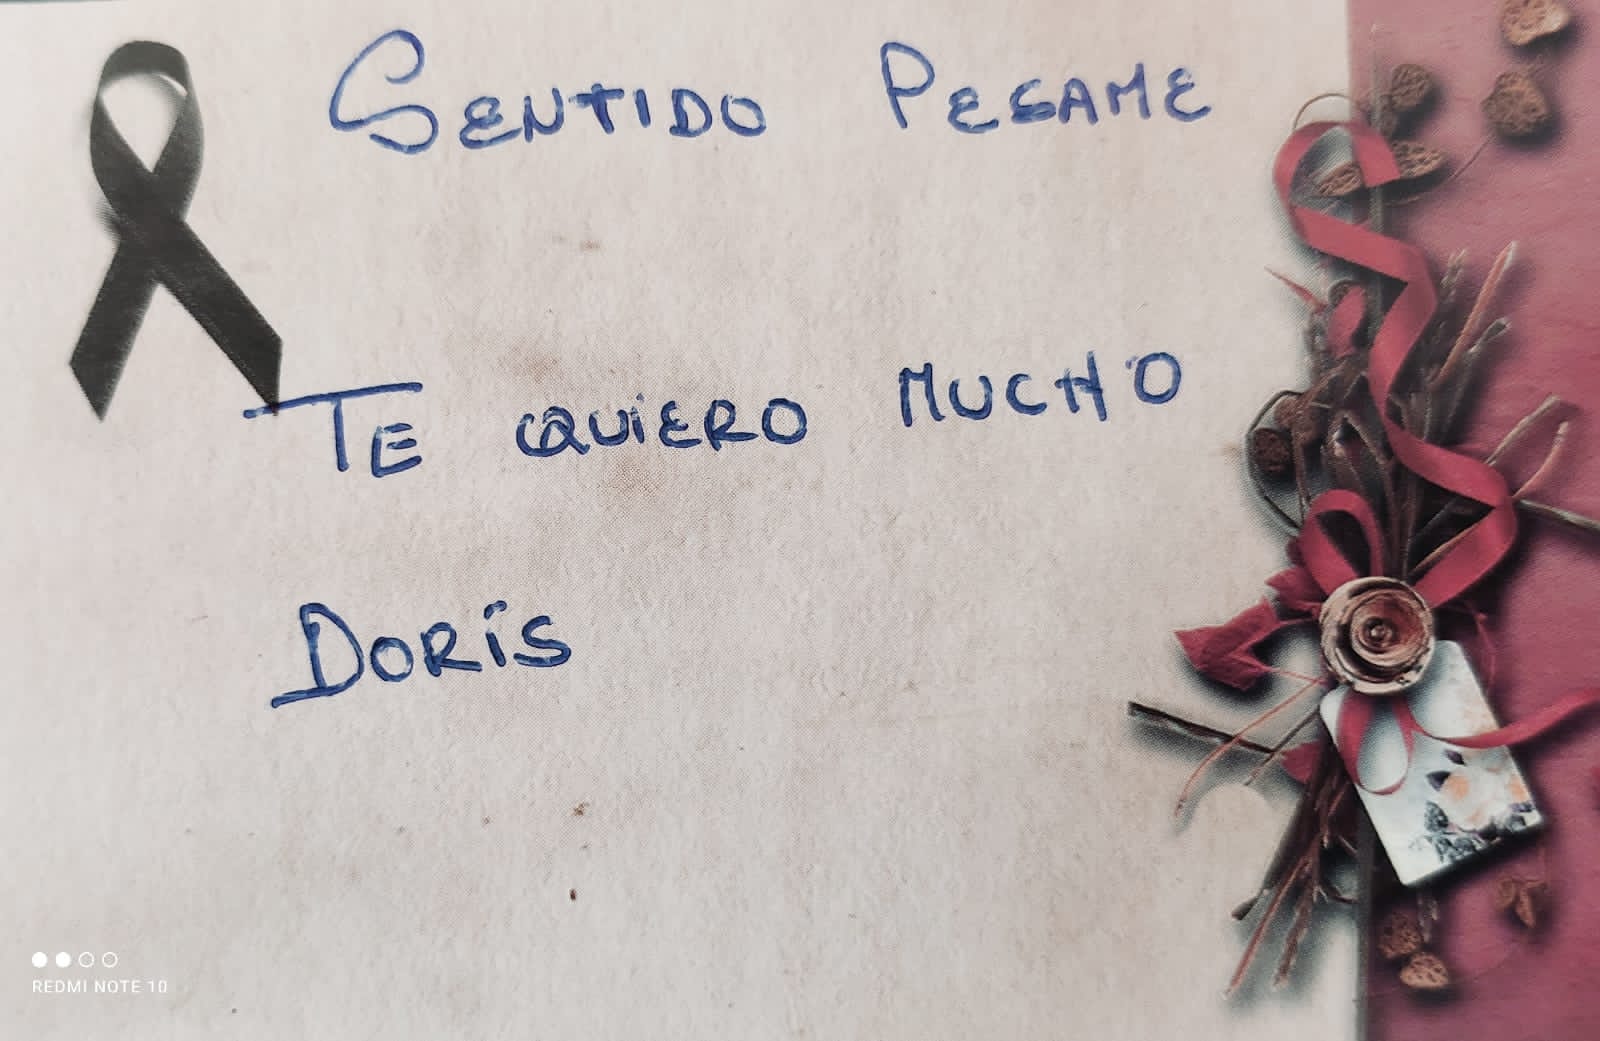 SENTIDO PESAME
TE QUIERO MUCHO
DORIS
REDMI NOTE 10